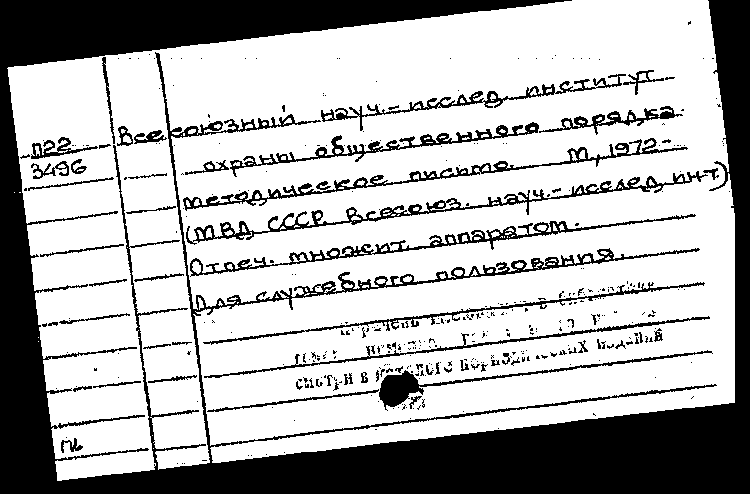 П22
3496
Всесоюзный науч.-исслед. институт
охраны общественного порядка.
методическое письмо. М, 1972-
(МВД СССР. Всесоюз. науч.-исслед. ин-т)
Отпеч. множит. аппаратом.
Для служебного пользования.
Перечень в библиотеке
смотри в каталоге периодических изданий